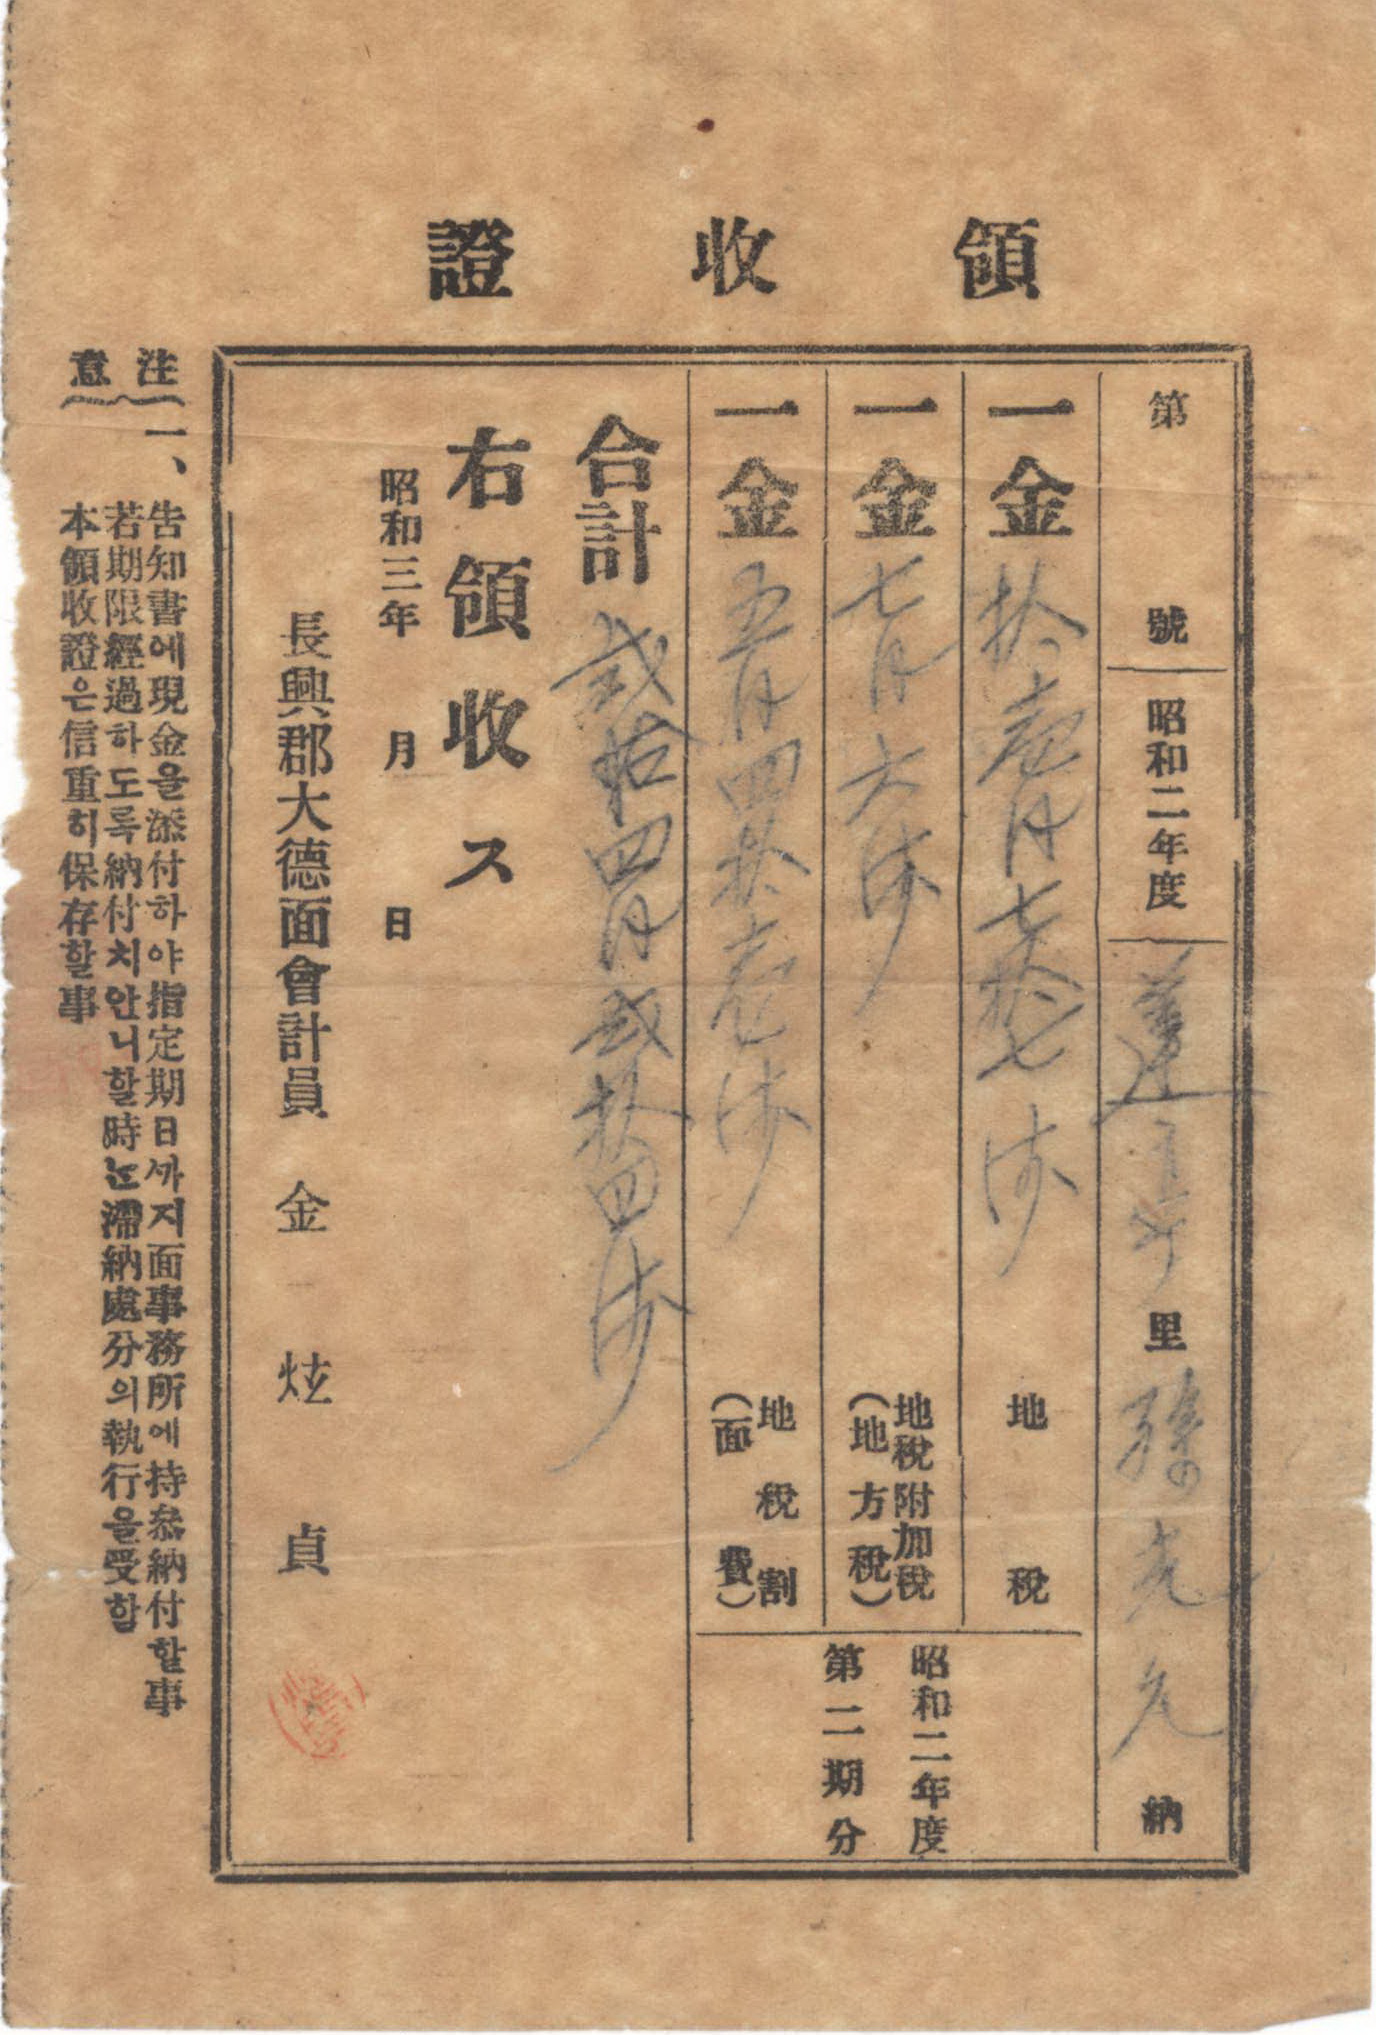 領收證
第 號 昭和二年度 蓮 里 孫 納
一金 拾壹円七拾七錢 地稅
一金 七円六錢 地稅附加稅(地方稅)
一金 五円四拾壹錢 地稅割(面費)
昭和二年度
第二期分
合計 貳拾四円貳拾四錢
右領收ス
昭和三年 月 日
長興郡大德面會計員 金炫貞
注意
一、告知書에現金을添付하야指定期日싸지面事務所에持參納付할事
若期限經過하도록納付치안니할時는滯納處分의執行을受함
本領收證은信重히保存할事